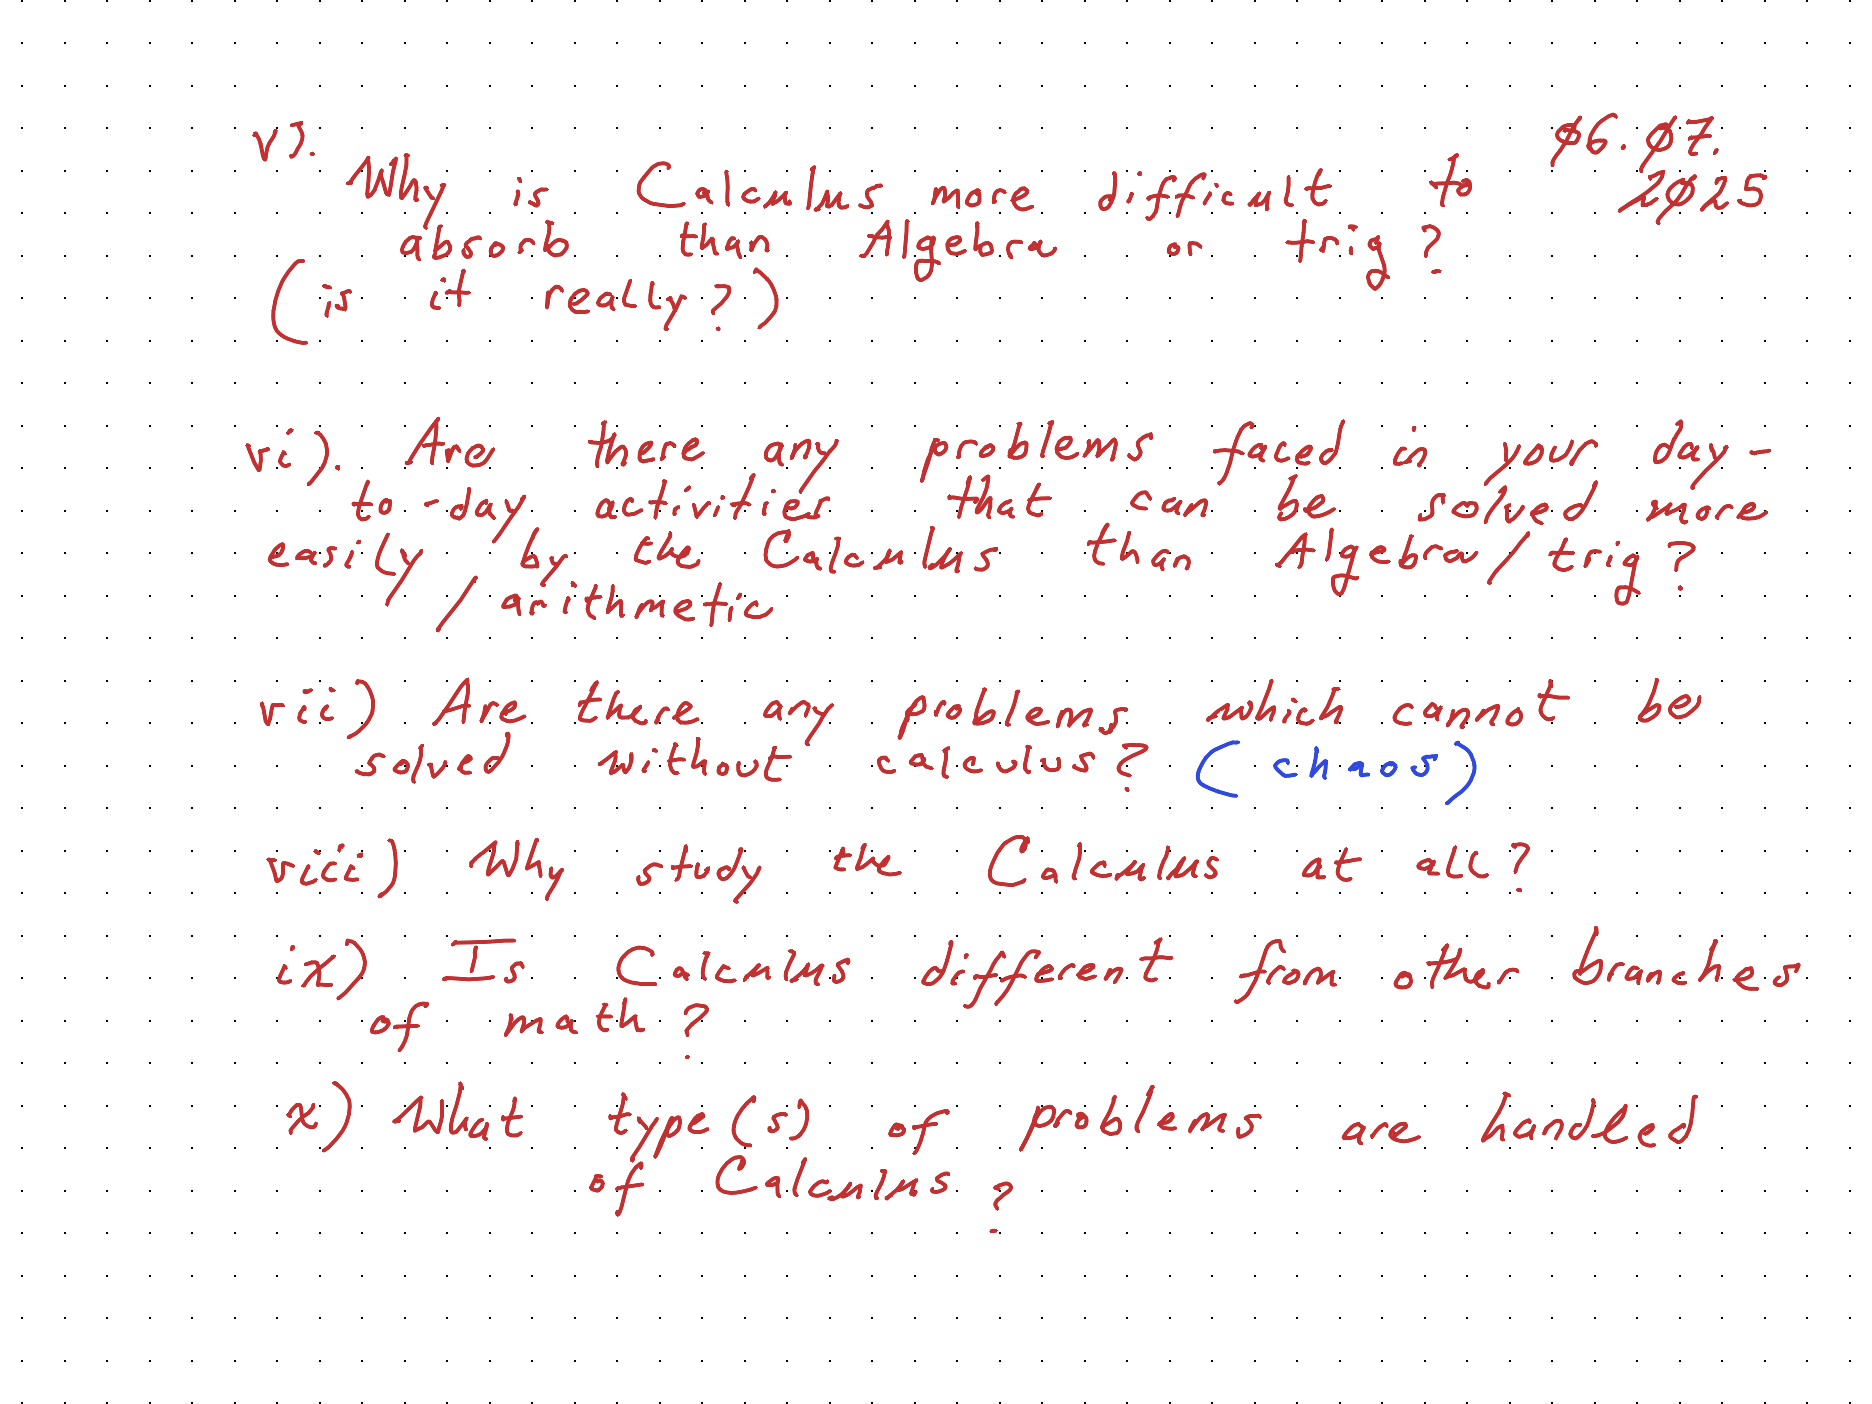 v).
Why is Calculus more difficult to
06.07.
2025
absorb than Algebra or trig?
(is it really?)
vi). Are there any problems faced in your day-
to-day activities that can be solved more
easily by the Calculus than Algebra/trig?
/arithmetic
vii) Are there any problems which cannot be
solved without calculus? (chaos)
viii) Why study the Calculus at all?
ix) Is Calculus different from other branches
of math?
x) What type(s) of problems are handled
of Calculus?